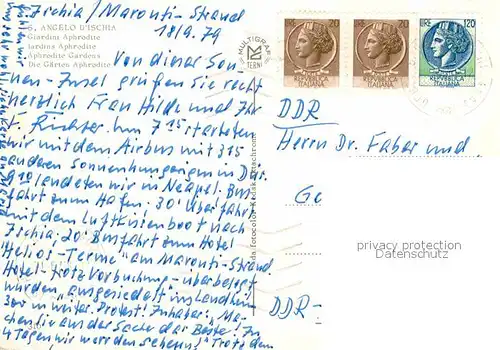 Ischia / Maronti-Strand
18/9.79
S. ANGELO D'ISCHIA
Giardini Aphrodite
Jardins Aphrodite
Aphrodite Gardens
Die Gärten Aphrodite
Von dieser Son-
nen-Insel grüßen Sie recht
herzlich Frau Hilde und Ihr
F. Richter. Um 7 15 starteten
wir mit dem Airbus mit 315
anderen Sonnenhungrigen in
9 10 landeten wir in Neapel. Bus-
fahrt zum Hafen. 30' Überfahrt
mit dem Luftkissenboot nach
Ischia, 20' Busfahrt zum Hotel
"Helios-Terme" am Maronti-Strand.
Hotel trotz Vorbuchung überbelegt
wurden "ausgesiedelt" ins Landhin
300 m weiter. Protest! Inhaber: "Ma-
chen Sie aus der Sache das Beste! In
4 Tagen wir werden sehen!" Trotzdem
MULTIGRAF
TERNI
REPUBBLICA
ITALIANA
REPUBBLICA
ITALIANA
LIRE 120
REPUBBLICA
ITALIANA
DDR
Herrn Dr. Faber und
Ge
DDR-
privacy protection
Datenschutz